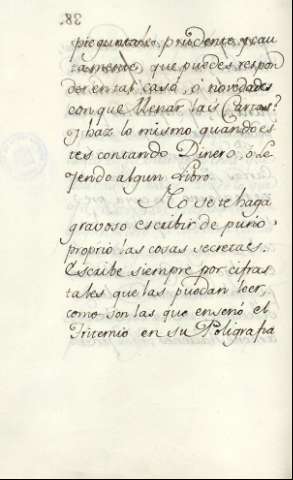 38.
preguntalo, prudente, y cau
tamente, que puedes respon
der en tal caso, ó novedades
con que llenar las Cartas.
y haz lo mismo quando es
tes contando Dinero, ó Le
yendo algun Libro.
No se te haga
gravoso escribir de puño
proprio las cosas secretas.
Escribe siempre por cifras
tales que las puedan leer,
como son las que enseñó el
Tritemio en su Poligrafia